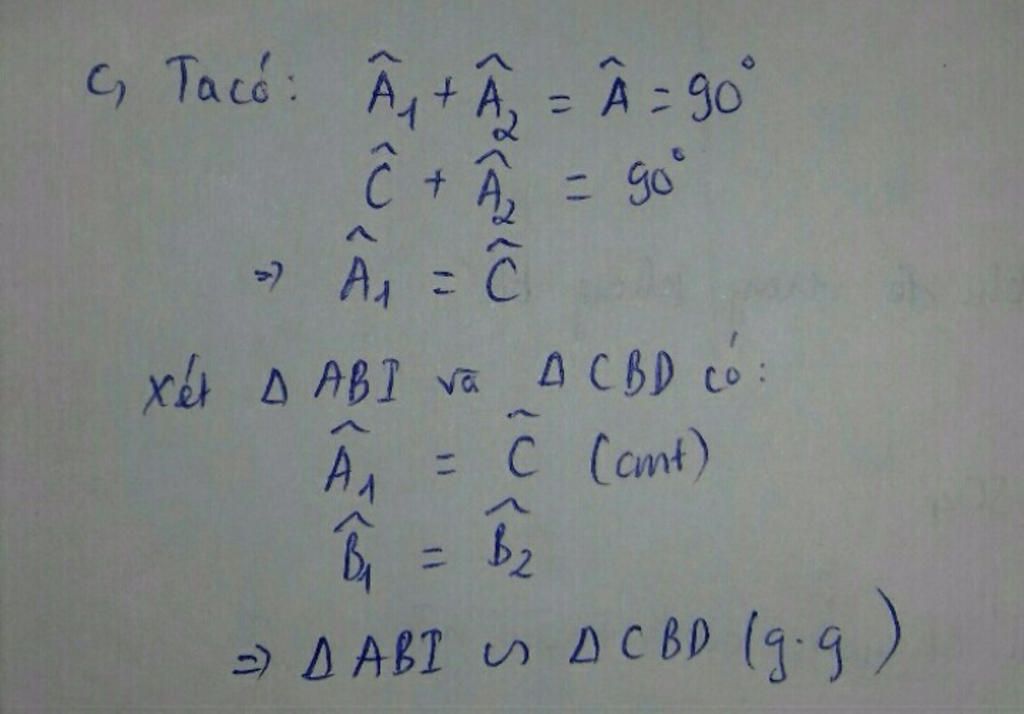 c, Ta có: Â₁ + Â₂ = Â = 90°
Ĉ + Â₂ = 90°
=> Â₁ = Ĉ
Xét Δ ABI và Δ CBD có:
Â₁ = Ĉ (cmt)
B̂₁ = B̂₂
=> Δ ABI ∽ Δ CBD (g.g)